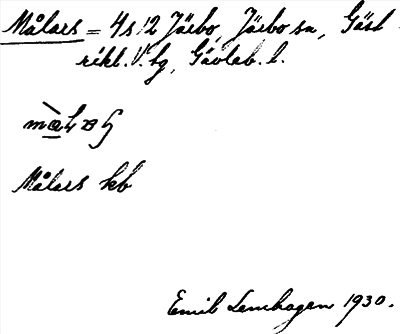 Målars = 4s12 Järbo, Järbo sn, Gäst-
rikl. V. tg, Gävleb. l.
Målars kb
Emil Lenhagen 1930.